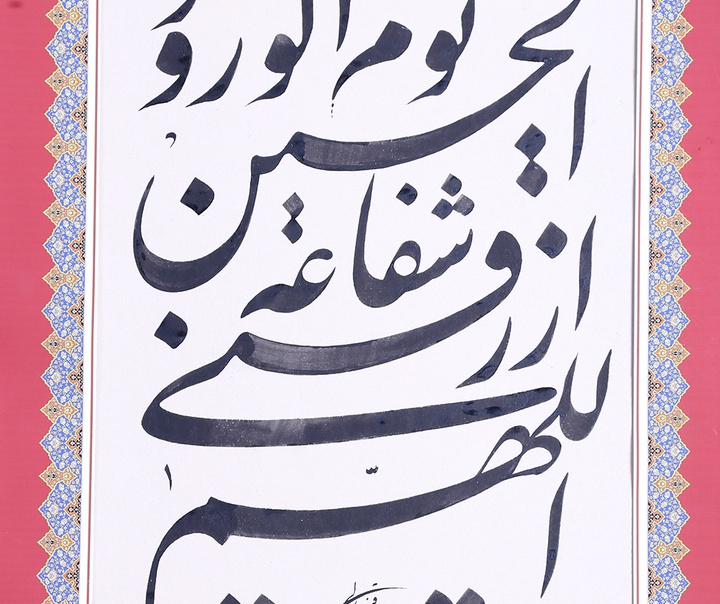 اللهم
ارزقنی
شفاعة
الحسین
یوم الورود